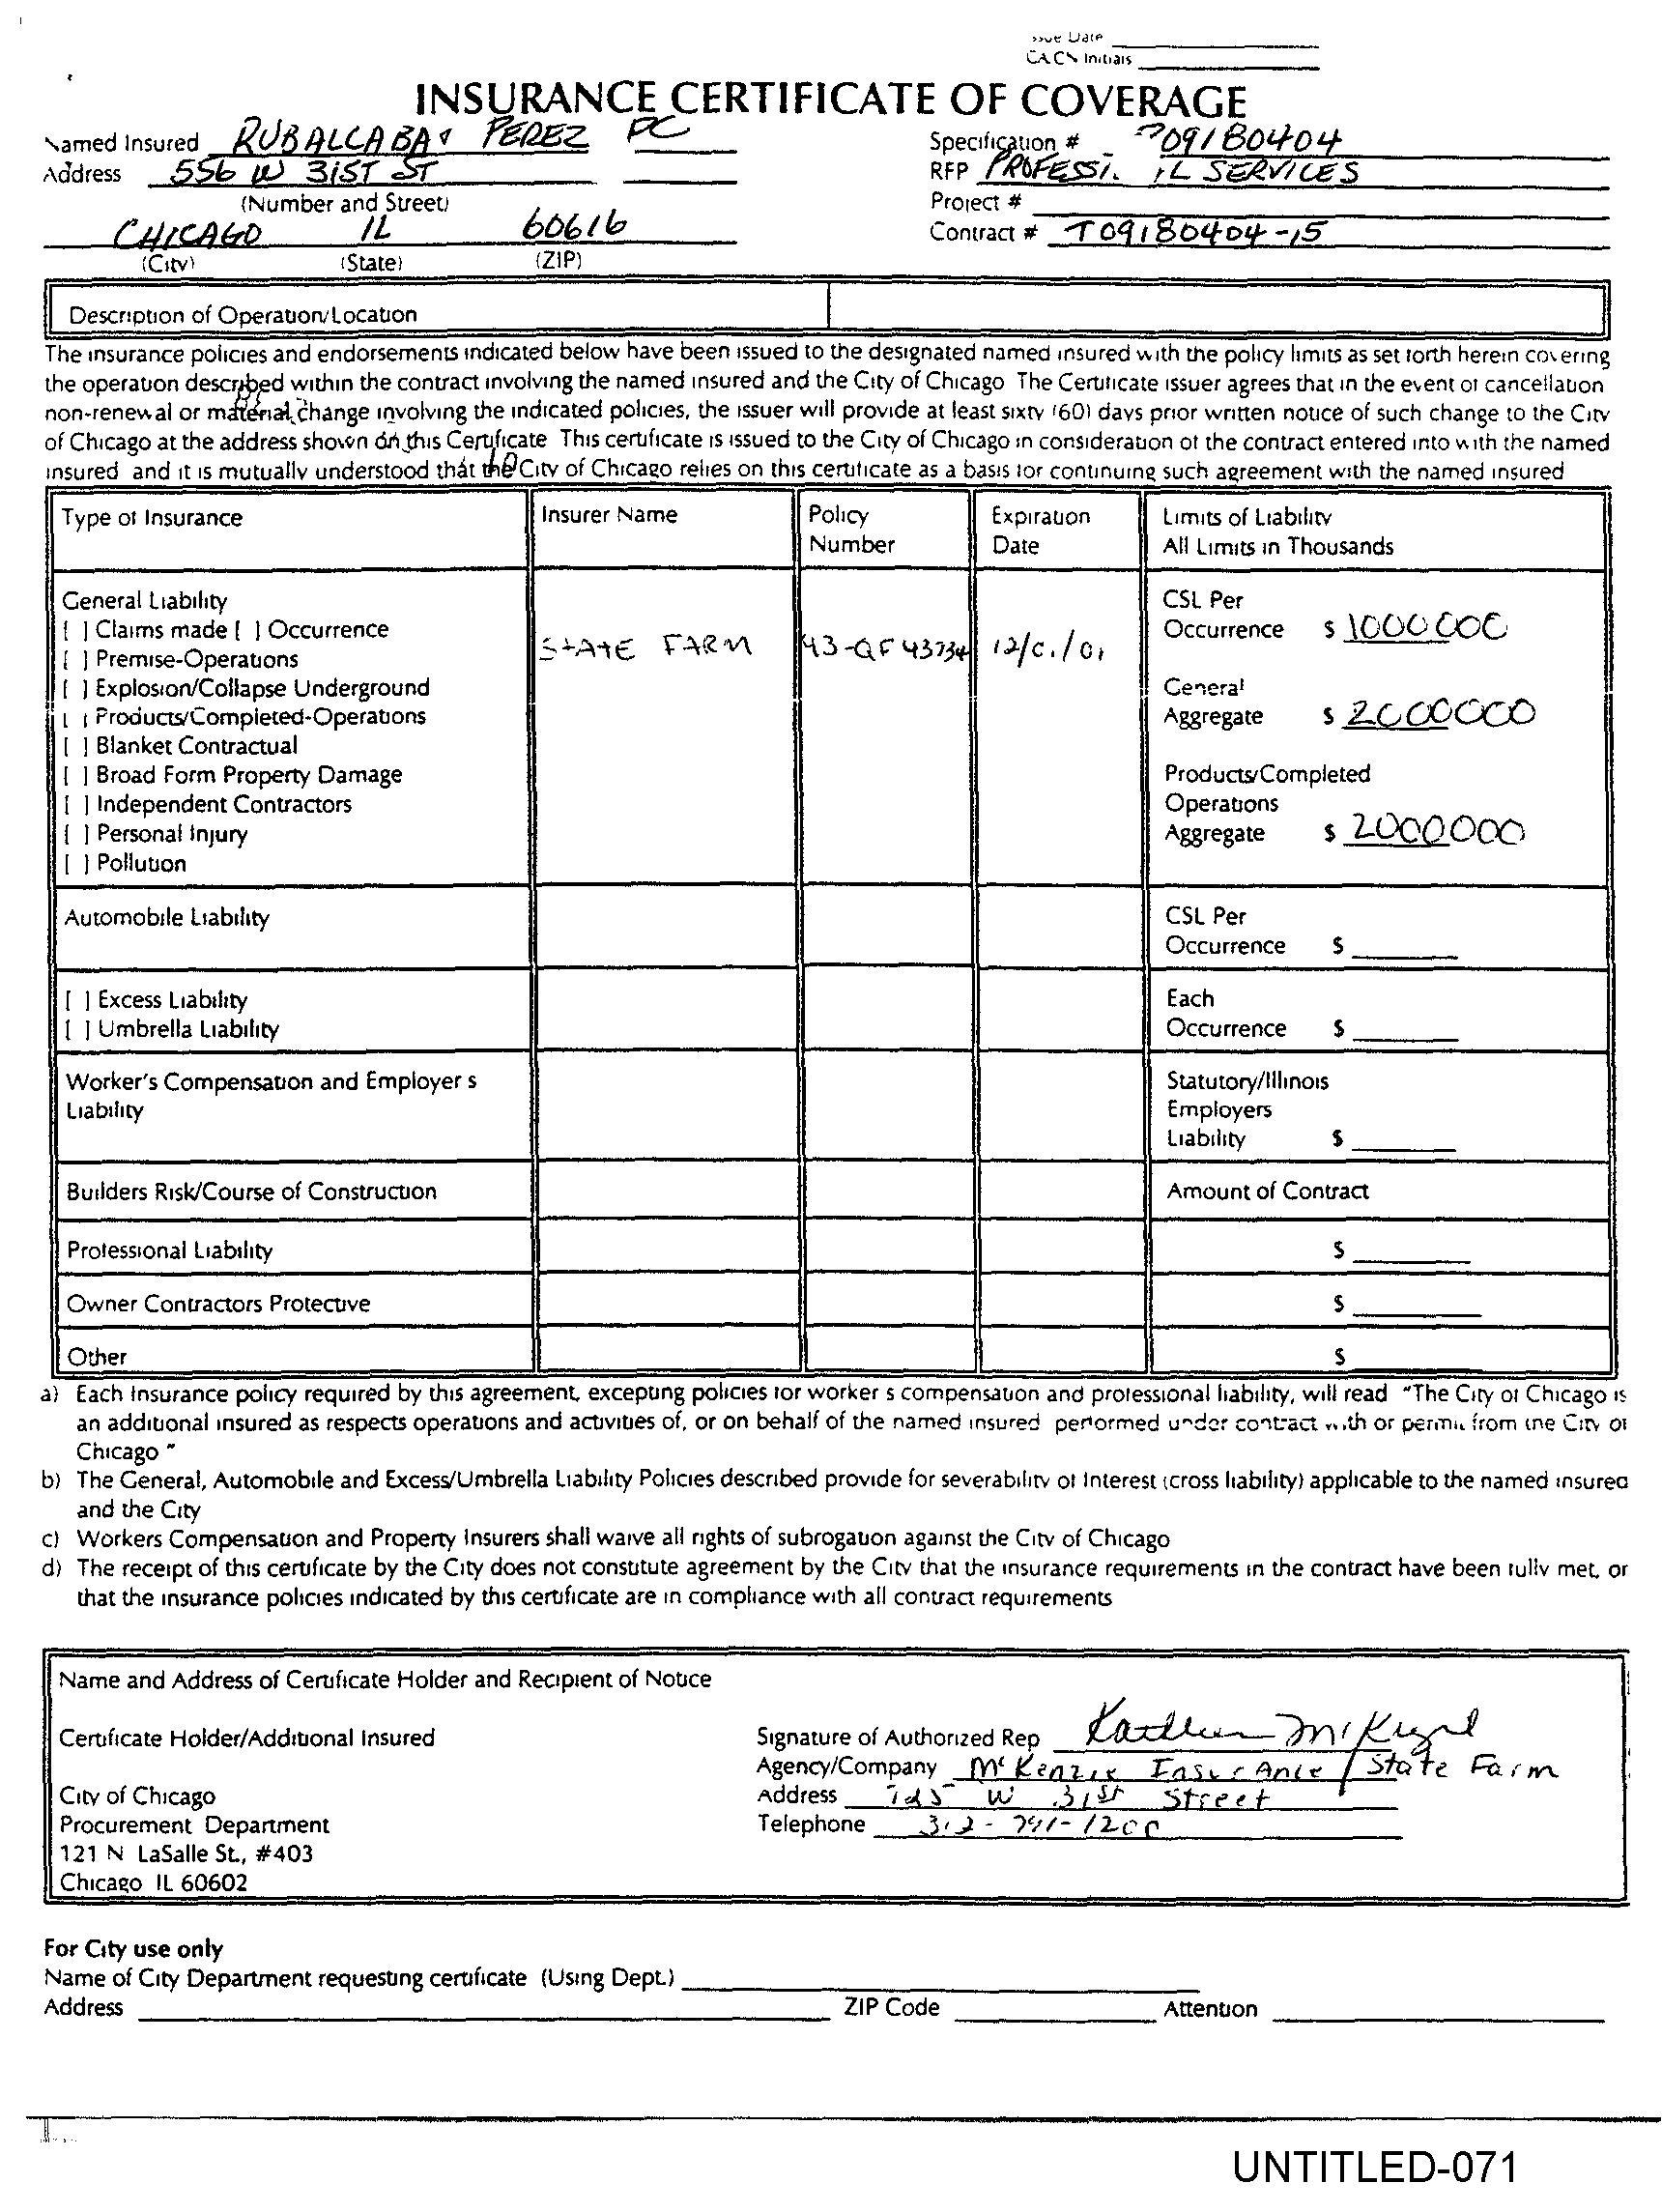 Issue Date
CAC's Initials
INSURANCE CERTIFICATE OF COVERAGE
Named Insured RUBALCABA & PEREZ PC
Address 556 W 31ST ST
(Number and Street)
CHICAGO IL 60616
(City) (State) (ZIP)
Specification # 09180404
RFP SERVICES
Project #
Contract # T09180404-15
Description of Operation/Location
The insurance policies and endorsements indicated below have been issued to the designated named insured with the policy limits as set forth herein covering
the operation described within the contract involving the named insured and the City of Chicago The Certificate issuer agrees that in the event of cancellation
non-renewal or material change involving the indicated policies, the issuer will provide at least sixty (60) days prior written notice of such change to the City
of Chicago at the address shown on this Certificate This certificate is issued to the City of Chicago in consideration of the contract entered into with the named
insured and it is mutually understood that the City of Chicago relies on this certificate as a basis for continuing such agreement with the named insured
Type of Insurance
Insurer Name
Policy
Number
Expiration
Date
Limits of Liability
All Limits in Thousands
General Liability
[ ] Claims made [ ] Occurrence
[ ] Premise-Operations
[ ] Explosion/Collapse Underground
[ ] Products/Completed-Operations
[ ] Blanket Contractual
[ ] Broad Form Property Damage
[ ] Independent Contractors
[ ] Personal Injury
[ ] Pollution
STATE FARM
93-QF 43734
CSL Per
Occurrence $ 1000000
General
Aggregate $ 2000000
Products/Completed
Operations
Aggregate $ 2000000
Automobile Liability
CSL Per
Occurrence $
[ ] Excess Liability
[ ] Umbrella Liability
Each
Occurrence $
Worker's Compensation and Employer s
Liability
Statutory/Illinois
Employers
Liability $
Builders Risk/Course of Construction
Amount of Contract
Professional Liability
$
Owner Contractors Protective
$
Other
$
a) Each Insurance policy required by this agreement, excepting policies for worker s compensation and professional liability, will read "The City of Chicago is
an additional insured as respects operations and activities of, or on behalf of the named insured performed under contract with or permit from the City of
Chicago "
b) The General, Automobile and Excess/Umbrella Liability Policies described provide for severability of Interest (cross liability) applicable to the named insured
and the City
c) Workers Compensation and Property Insurers shall waive all rights of subrogation against the City of Chicago
d) The receipt of this certificate by the City does not constitute agreement by the City that the insurance requirements in the contract have been fully met, or
that the insurance policies indicated by this certificate are in compliance with all contract requirements
Name and Address of Certificate Holder and Recipient of Notice
Certificate Holder/Additional Insured
City of Chicago
Procurement Department
121 N LaSalle St., #403
Chicago IL 60602
Signature of Authorized Rep Kathleen McKenzie
Agency/Company McKenzie Insurance / State Farm
Address W 31st Street
Telephone 312-791-1200
For City use only
Name of City Department requesting certificate (Using Dept.)
Address ZIP Code Attention
UNTITLED-071